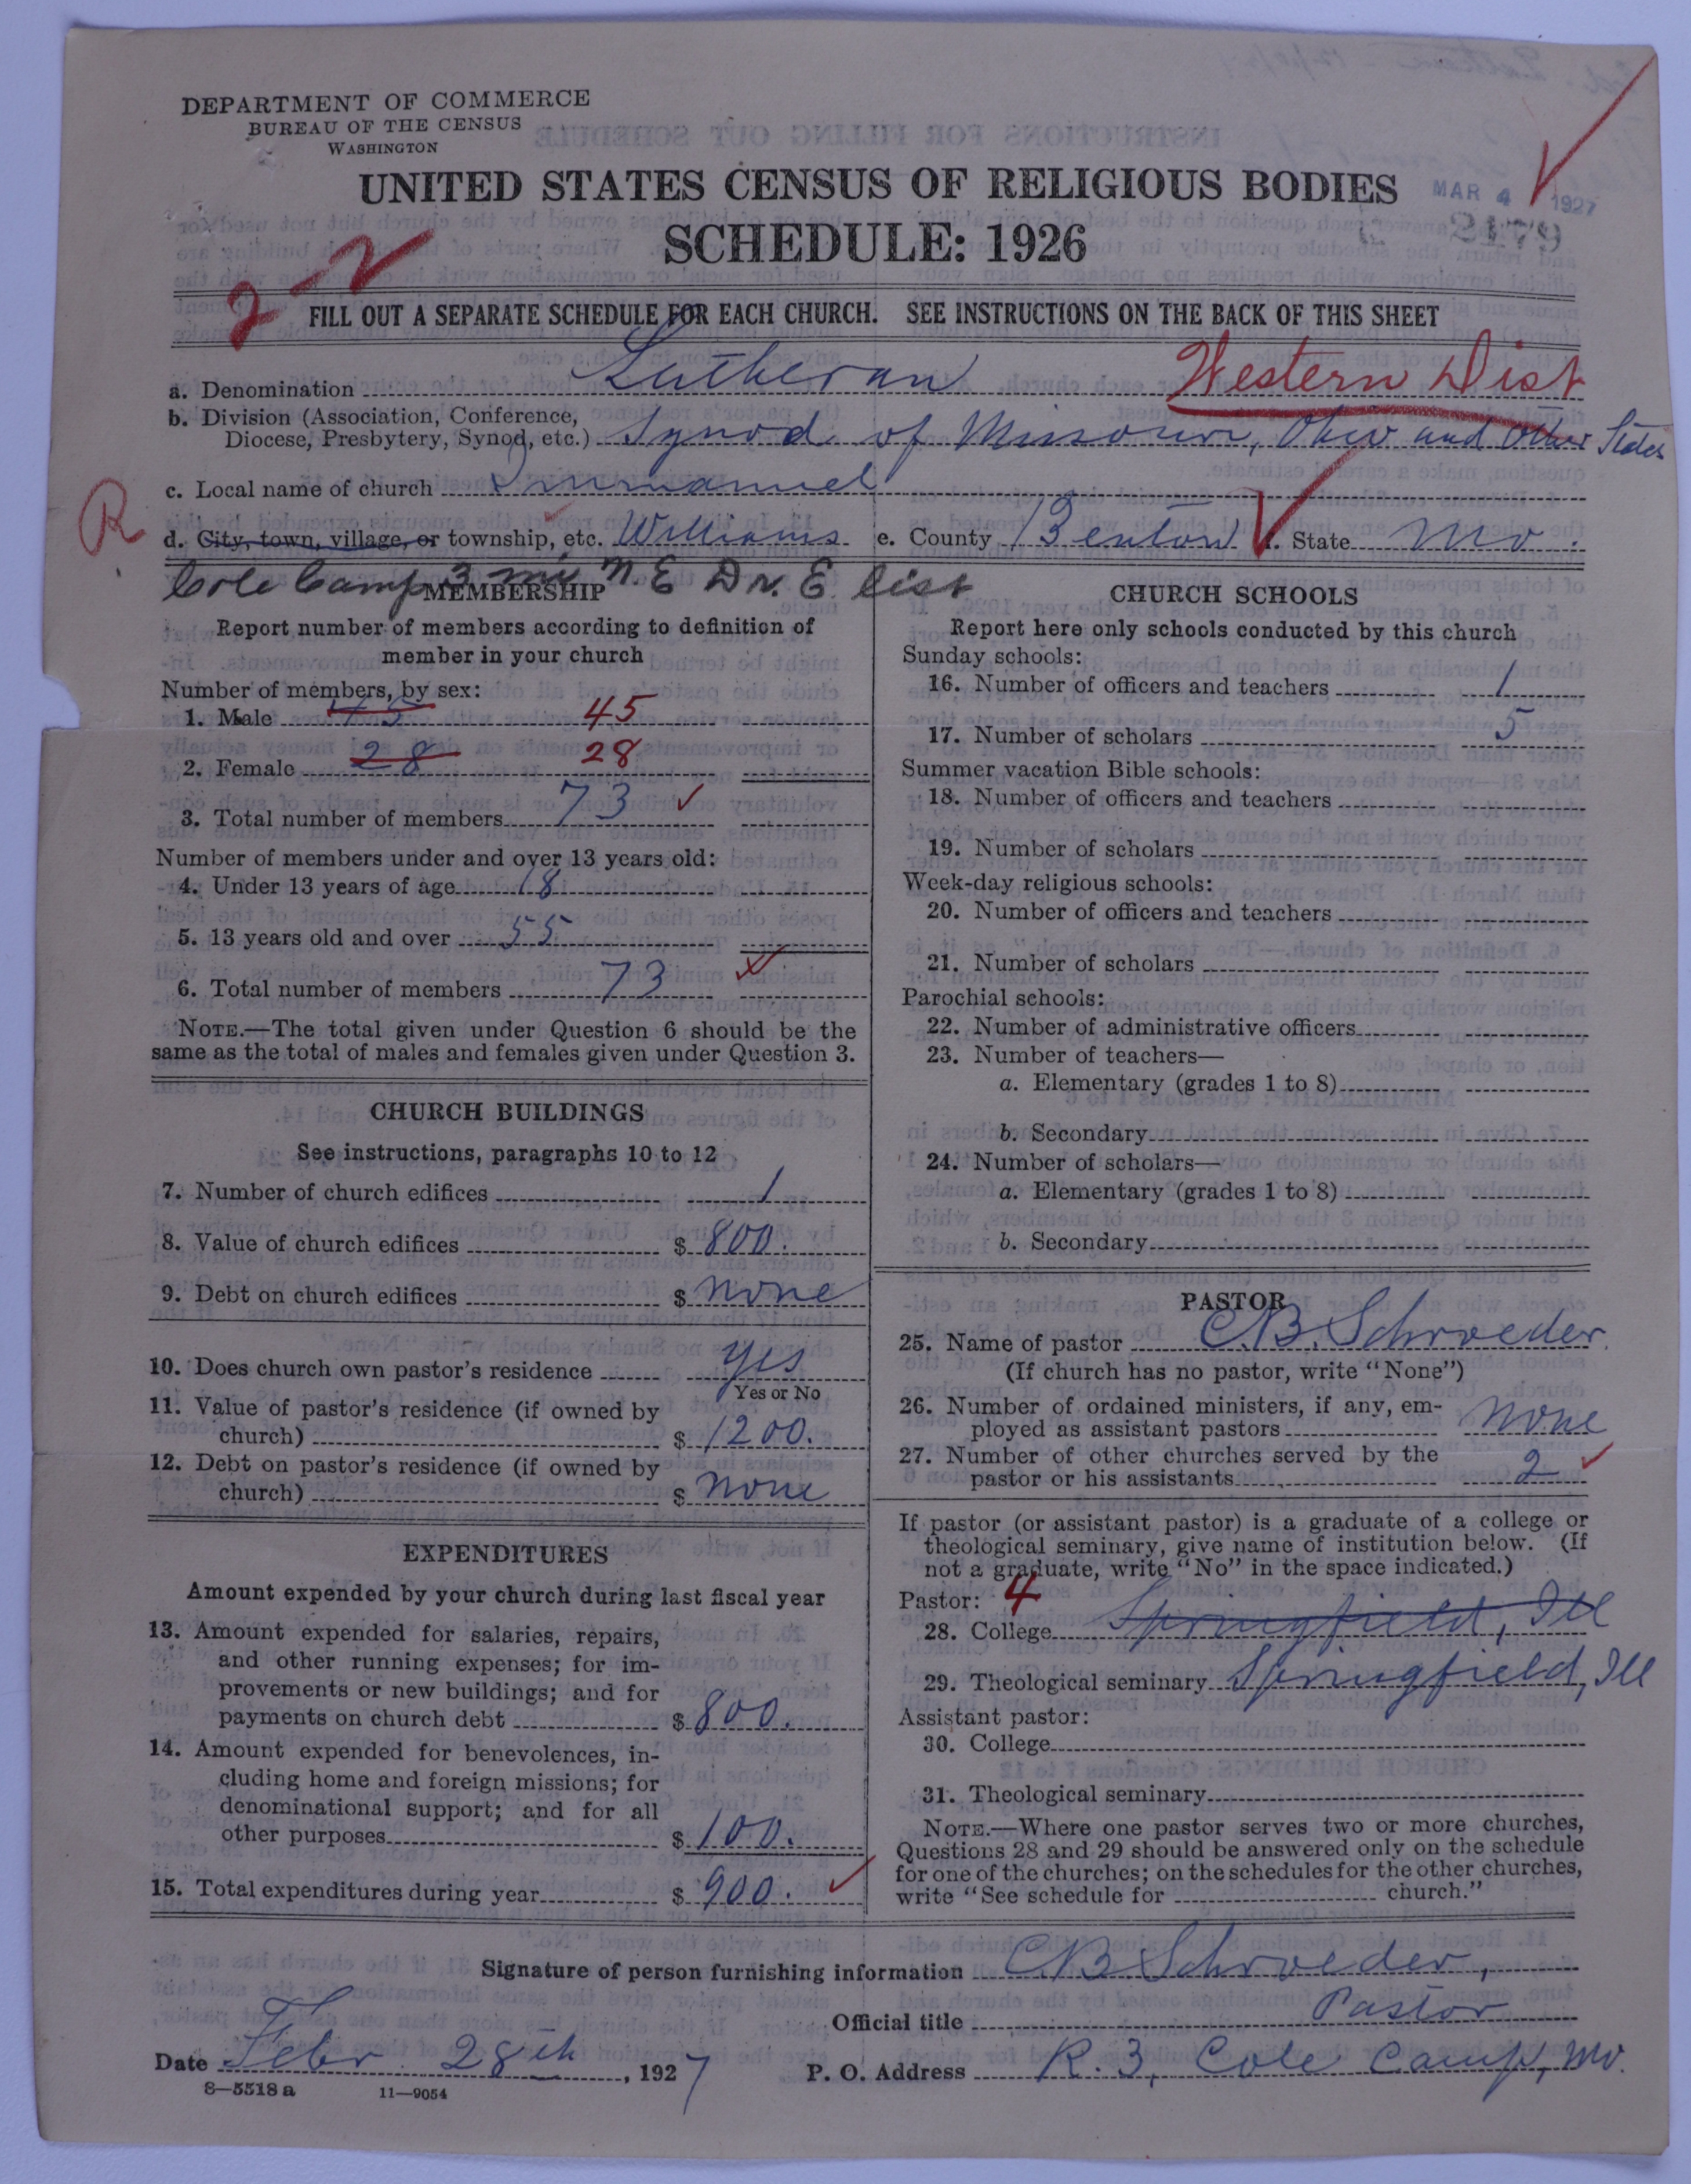 DEPARTMENT OF COMMERCE
BUREAU OF THE CENSUS
WASHINGTON
UNITED STATES CENSUS OF RELIGIOUS BODIES
MAR 4 1927
SCHEDULE: 1926
2179
2-2
FILL OUT A SEPARATE SCHEDULE FOR EACH CHURCH. SEE INSTRUCTIONS ON THE BACK OF THIS SHEET
a. Denomination Lutheran Western Dist
b. Division (Association, Conference,
Diocese, Presbytery, Synod, etc.) Synod of Missouri, Ohio and other States
c. Local name of church Immanuel
R
d. City, town, village, or township, etc. Williams e. County Benton f. State Mo.
Cole Camp 3 mi N E Dr. E list
MEMBERSHIP
Report number of members according to definition of
member in your church
Number of members, by sex:
1. Male 45 45
2. Female 28 28
3. Total number of members 73
Number of members under and over 13 years old:
4. Under 13 years of age 18
5. 13 years old and over 55
6. Total number of members 73
NOTE.—The total given under Question 6 should be the
same as the total of males and females given under Question 3.
CHURCH BUILDINGS
See instructions, paragraphs 10 to 12
7. Number of church edifices 1
8. Value of church edifices $ 800.
9. Debt on church edifices $ none
10. Does church own pastor's residence yes
Yes or No
11. Value of pastor's residence (if owned by
church) $ 1200.
12. Debt on pastor's residence (if owned by
church) $ none
EXPENDITURES
Amount expended by your church during last fiscal year
13. Amount expended for salaries, repairs,
and other running expenses; for im-
provements or new buildings; and for
payments on church debt $ 800.
14. Amount expended for benevolences, in-
cluding home and foreign missions; for
denominational support; and for all
other purposes $ 100.
15. Total expenditures during year $ 900.
CHURCH SCHOOLS
Report here only schools conducted by this church
Sunday schools:
16. Number of officers and teachers 1
17. Number of scholars 5
Summer vacation Bible schools:
18. Number of officers and teachers
19. Number of scholars
Week-day religious schools:
20. Number of officers and teachers
21. Number of scholars
Parochial schools:
22. Number of administrative officers
23. Number of teachers—
a. Elementary (grades 1 to 8)
b. Secondary
24. Number of scholars—
a. Elementary (grades 1 to 8)
b. Secondary
PASTOR
25. Name of pastor C.B. Schroeder
(If church has no pastor, write "None")
26. Number of ordained ministers, if any, em-
ployed as assistant pastors none
27. Number of other churches served by the
pastor or his assistants 2
If pastor (or assistant pastor) is a graduate of a college or
theological seminary, give name of institution below. (If
not a graduate, write "No" in the space indicated.)
Pastor: 4
28. College Springfield, Ill
29. Theological seminary Springfield, Ill
Assistant pastor:
30. College
31. Theological seminary
NOTE.—Where one pastor serves two or more churches,
Questions 28 and 29 should be answered only on the schedule
for one of the churches; on the schedules for the other churches,
write "See schedule for church."
Signature of person furnishing information CB Schroeder,
Official title Pastor
Date Febr 28th, 1927 P. O. Address R. 3, Cole Camp, Mo.
8—5518 a 11—9054